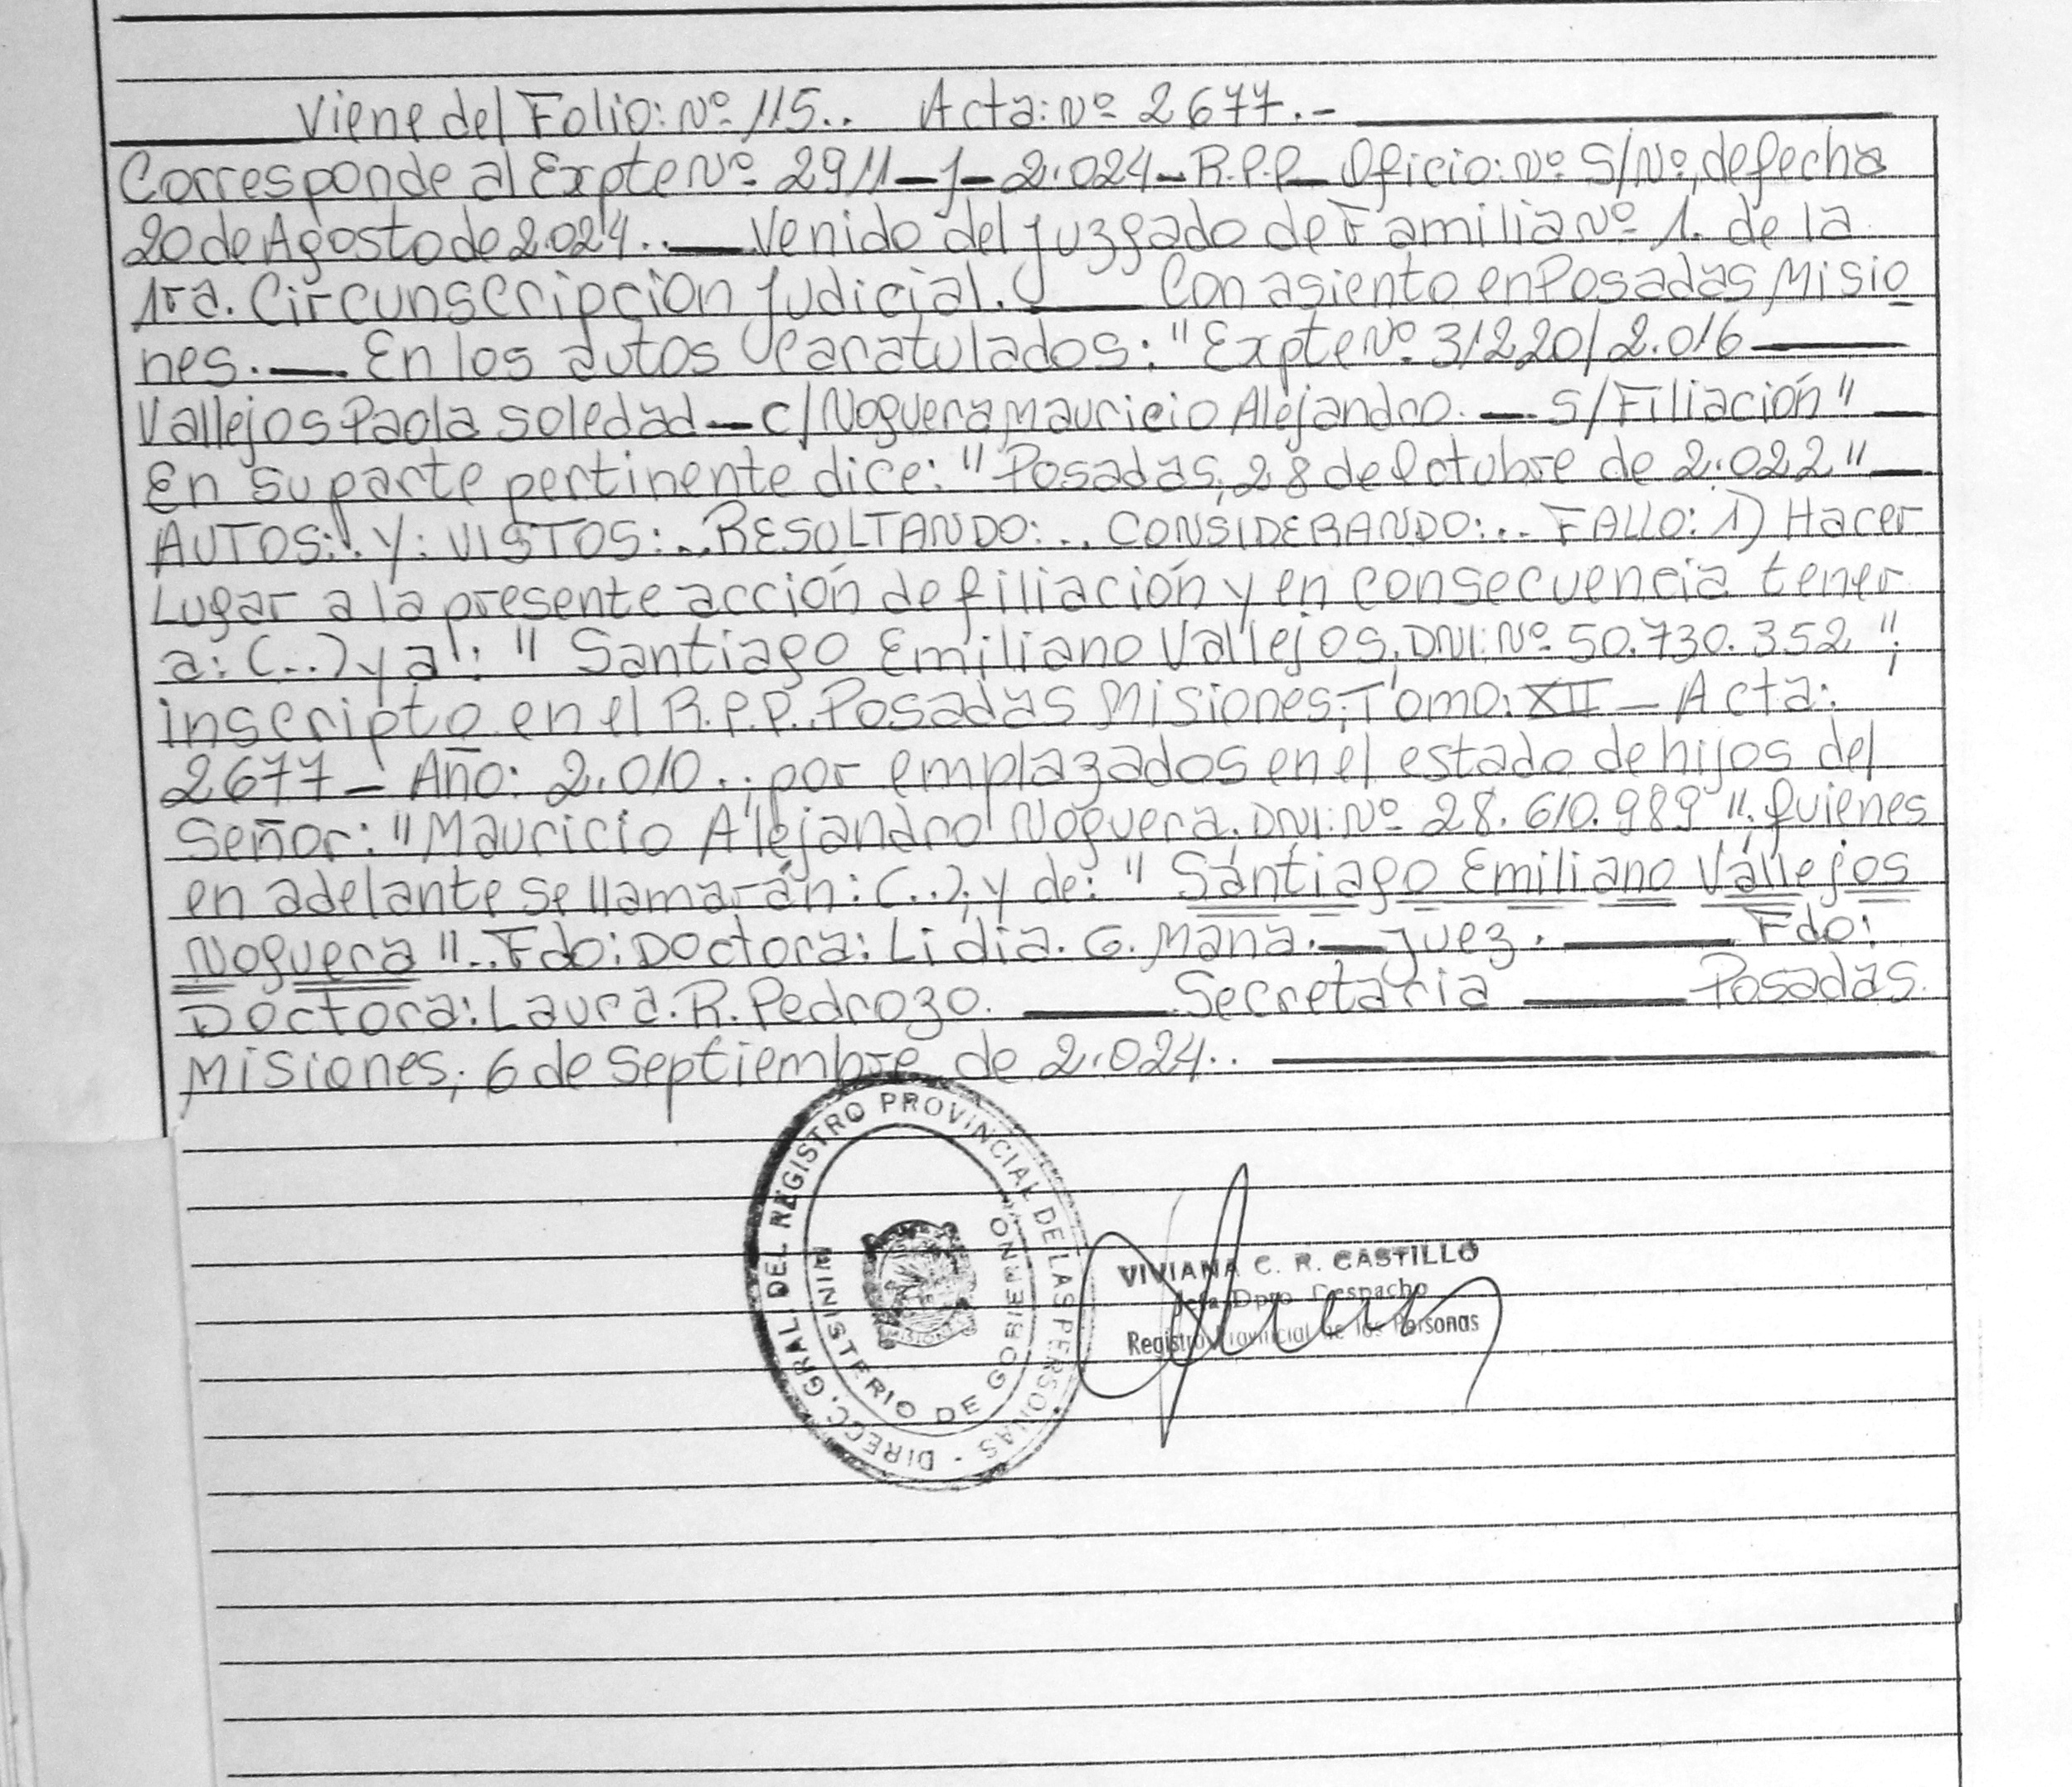 Viene del Folio: Nº 115.. Acta: Nº 2677.-
Corresponde al Expte Nº 2911-J-2.024-R.P.P. Oficio: Nº S/Nº, de fecha
20 de Agosto de 2.024.. Venido del Juzgado de Familia Nº 1. de la
1ra. Circunscripcion Judicial. Con asiento en Posadas, Misio
nes. En los autos Caratulados: "Expte Nº 31220/2.016
Vallejos Paola Soledad - c/ Noguera Mauricio Alejandro. - S/Filiación"
En su parte pertinente dice: "Posadas, 28 de Octubre de 2.022"
AUTOS:. Y: VISTOS:.. RESULTANDO:.. CONSIDERANDO:.. FALLO: 1) Hacer
Lugar a la presente acción de filiación y en consecuencia tener
a: (...) y a: "Santiago Emiliano Vallejos, DNI: Nº 50.730.352";
inscripto en el R.P.P. Posadas Misiones; Tomo: XII - Acta:
2677 - Año: 2.010..; por emplazados en el estado de hijos del
Señor: "Mauricio Alejandro Noguera. DNI: Nº 28.610.989"; quienes
en adelante se llamarán: (...); y de: "Santiago Emiliano Vallejos
Noguera".. Fdo: Doctora: Lidia. G. Mana. - Juez. Fdo:
Doctora: Laura. R. Pedrozo. Secretaria Posadas.
Misiones; 6 de Septiembre de 2.024..
DIRECC. GRAL. DEL REGISTRO PROVINCIAL DE LAS PERSONAS -
MINISTERIO DE GOBIERNO
MISIONES
VIVIANA C. R. CASTILLO
Jefa Dpto. Despacho
Registro Provincial de las Personas